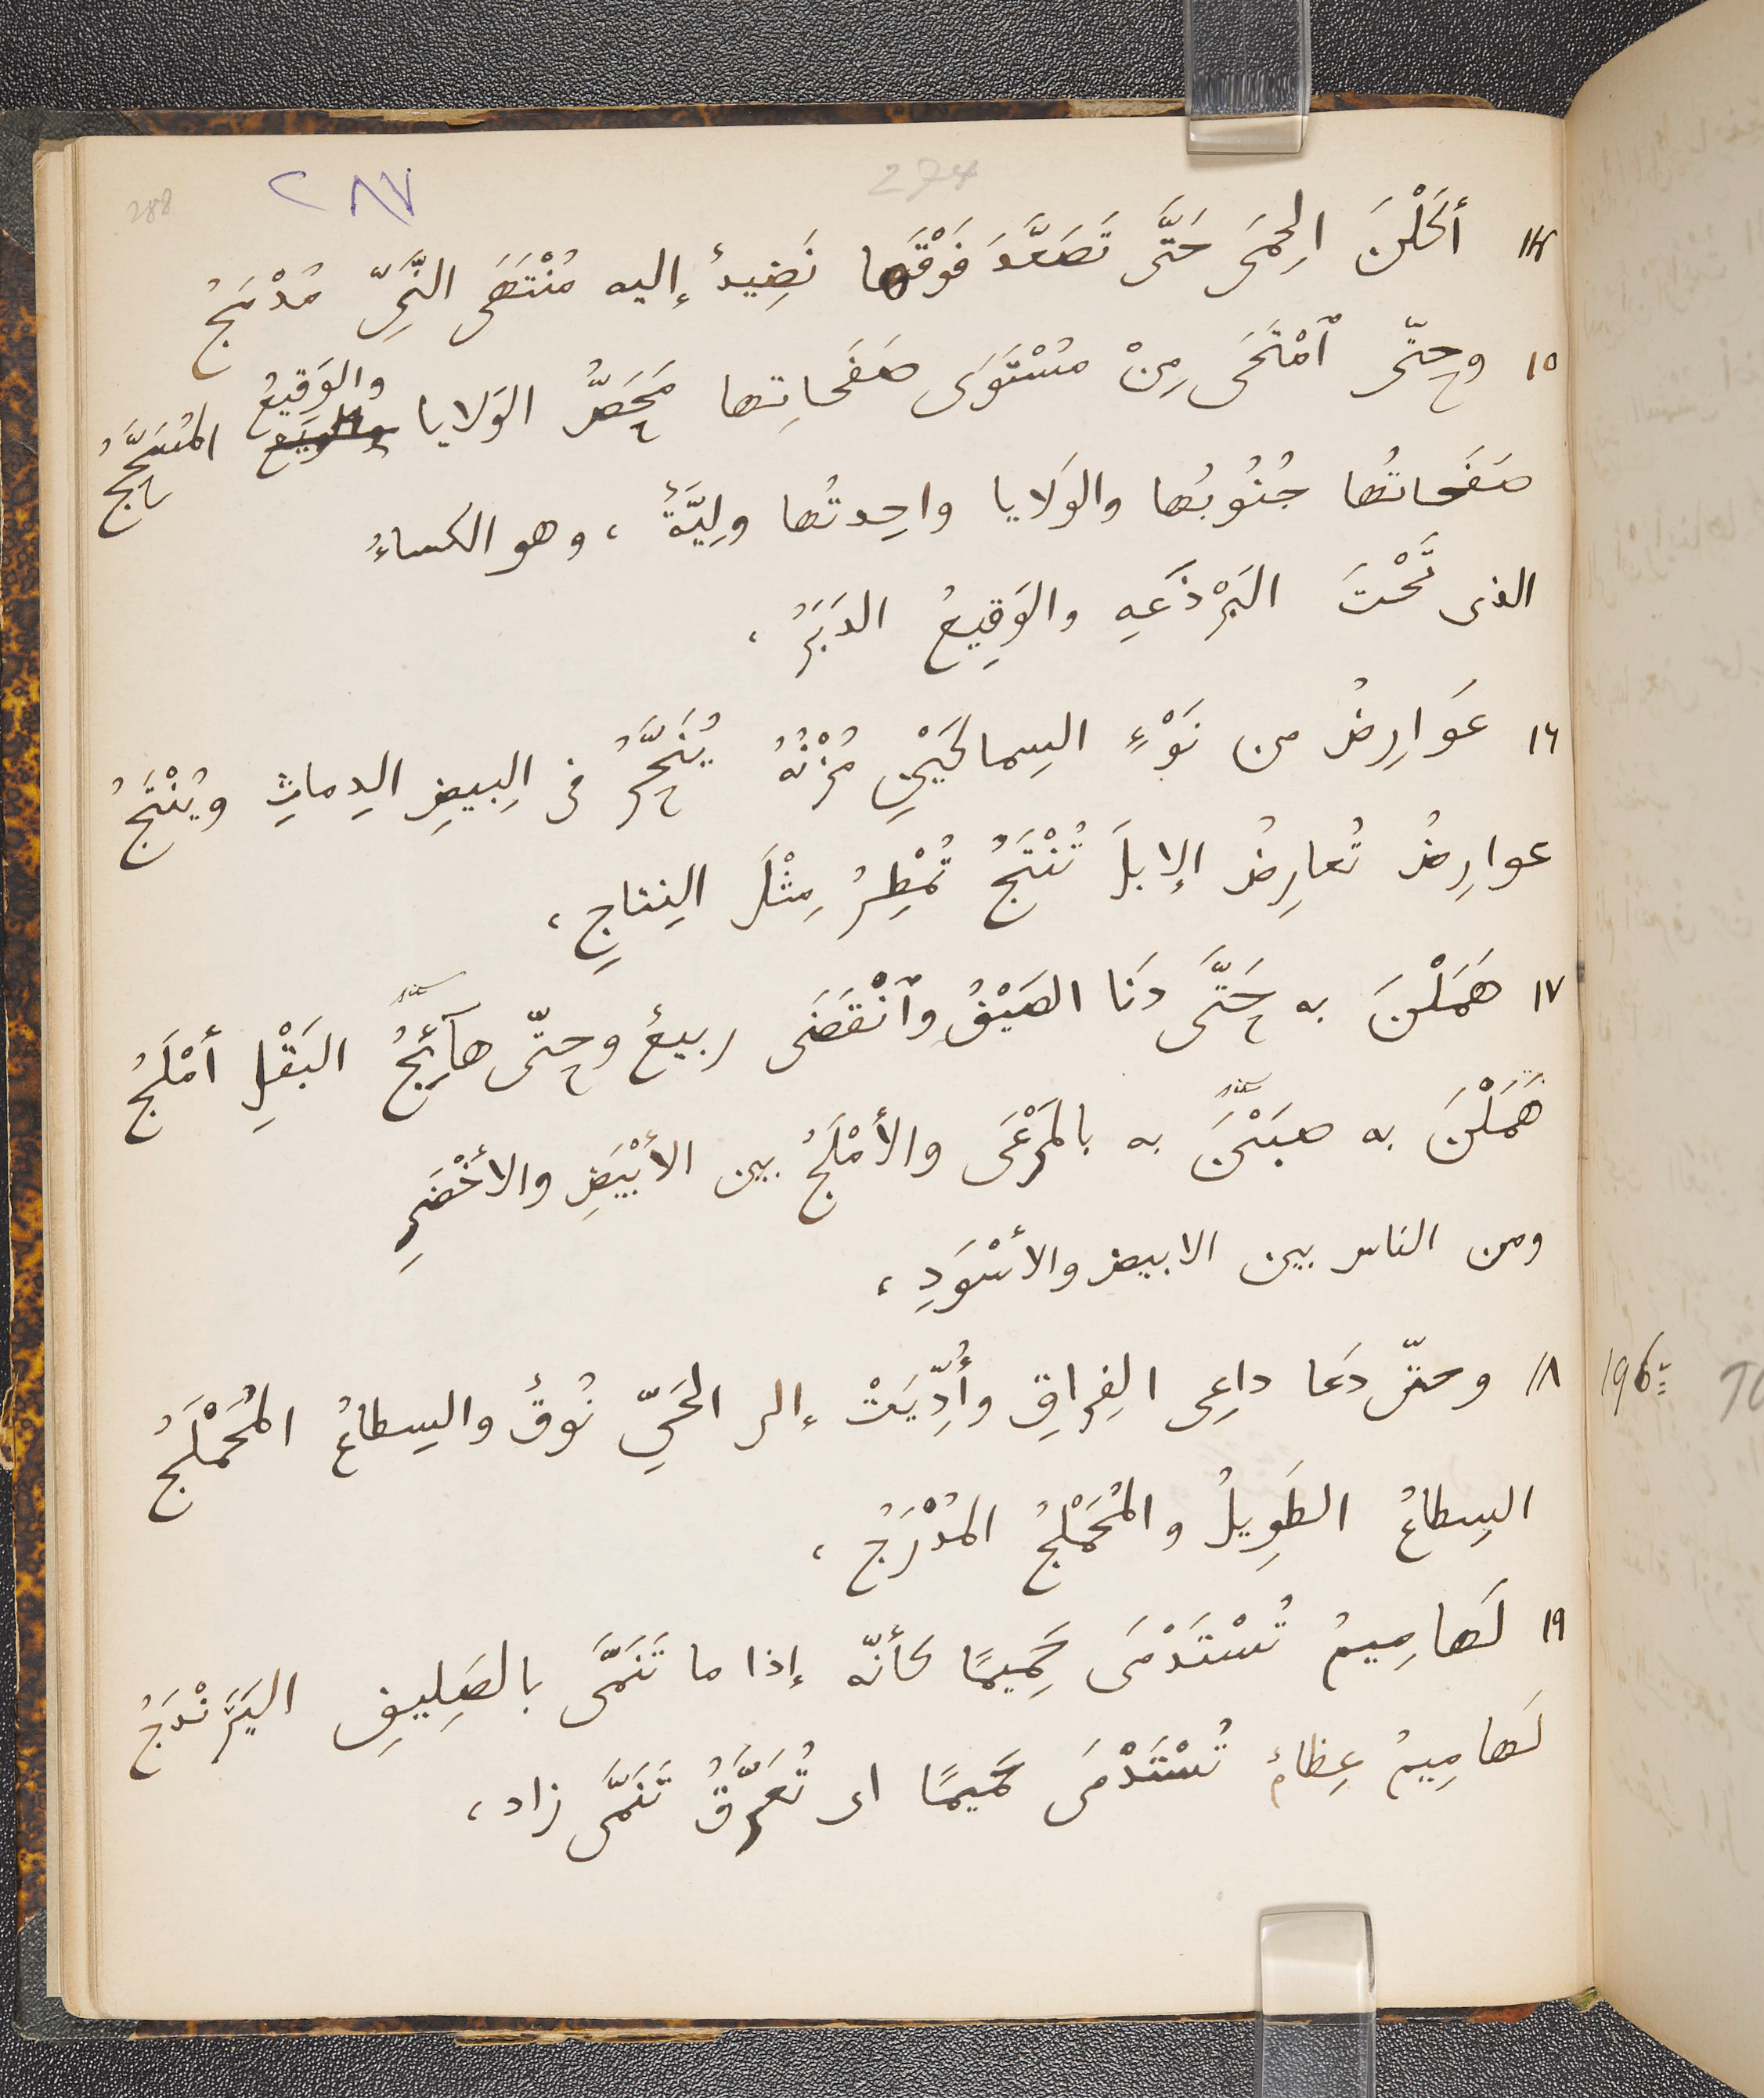 288
٢٨٧
274
١٤ أَكَلْنَ الحِمَى حَتَّى تَصَعَّدَ فَوْقَها نَضِيدٌ إليه مُنْتَهَى النَّىِّ مُدْمَجُ
١٥ وحتّى ٱمْتَحَى مِنْ مُسْتَوَى صَفَحاتِها مَحَصُّ الوَلايا والوَقيعُ المُسَحَّجُ
صَفَحاتُها جُنُوبُها والوَلايا واحِدتُها ولِيَّةٌ، وهو الكساءُ
الذى تَحْتَ البَرْذَعَهِ والوَقِيعُ الدَبَرُ،
١٦ عَوَارِضُ من نَوْءِ السِماكَيْنِ مُزْنُهُ يُنَحَّرُ فى البِيضِ الدِماثِ ويُنْتَجُ
عوارِضُ تُعارِضُ الإبلَ تُنْتَجُ تُمْطِرُ مِثْلَ النِتاجِ،
١٧ هَمَلْنَ به حَتَّى دَنَا الصَيْفُ وٱنْقَضَى ربيعٌ وحتّى هآئِجُ البَقْلِ أمْلَجُ
هَمَلْنَ به به بالمَرْعَى والأمْلَجُ بين الأبْيَضِ والأخْضَرِ
ومن الناس بين الابيض والأسْوَدِ،
١٨ وحتّى دَعَا داعِى الفِراقِ وأُدِّيَتْ إلى الحَيِّ نُوقٌ والسِطاعُ المُحَمْلَجُ
196
السِطاعُ الطَوِيلُ والمُحَمْلَجُ المُدْرَجُ،
١٩ لَهامِيمُ تُسْتَدْمَى حَمِيمًا كأنّه إذا ما تَنَمَّى بالصَلِيفِ اليَرَنْدَجُ
لَهامِيمُ عِظامٌ تُسْتَدْمَى حَمِيمًا اى تُعَرَّقُ تَنَمَّى زاد،